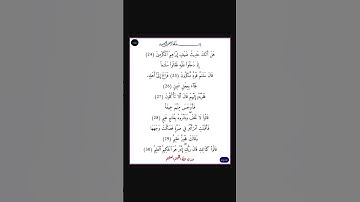 هَلْ أَتَاكَ حَدِيثُ ضَيْفِ إِبْرَاهِيمَ الْمُكْرَمِينَ (24)
إِذْ دَخَلُوا عَلَيْهِ فَقَالُوا سَلَامًا
قَالَ سَلَامٌ قَوْمٌ مُنْكَرُونَ (25) فَرَاغَ إِلَى أَهْلِهِ
فَجَاءَ بِعِجْلٍ سَمِينٍ (26)
فَقَرَّبَهُ إِلَيْهِمْ قَالَ أَلَا تَأْكُلُونَ (27)
فَأَوْجَسَ مِنْهُمْ خِيفَةً
قَالُوا لَا تَخَفْ وَبَشَّرُوهُ بِغُلَامٍ عَلِيمٍ (28)
فَأَقْبَلَتِ امْرَأَتُهُ فِي صَرَّةٍ فَصَكَّتْ وَجْهَهَا
وَقَالَتْ عَجُوزٌ عَقِيمٌ (29)
قَالُوا كَذَلِكِ قَالَ رَبُّكِ إِنَّهُ هُوَ الْحَكِيمُ الْعَلِيمُ (30)